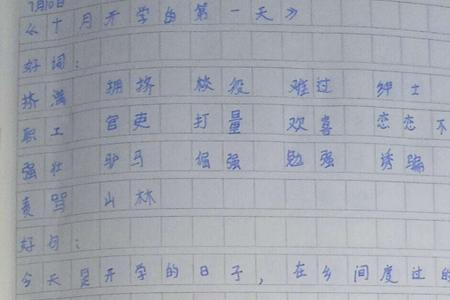 7月10日
《十月开学的第一天》
好词：
挤满 拥挤 棪役 难过 绅士
职工 官吏 打量 欢喜 恋恋不
强壮 驴马 倔强 勉强 诱骗
责骂 山林
好句：
今天是开学的日子，在乡间度过的